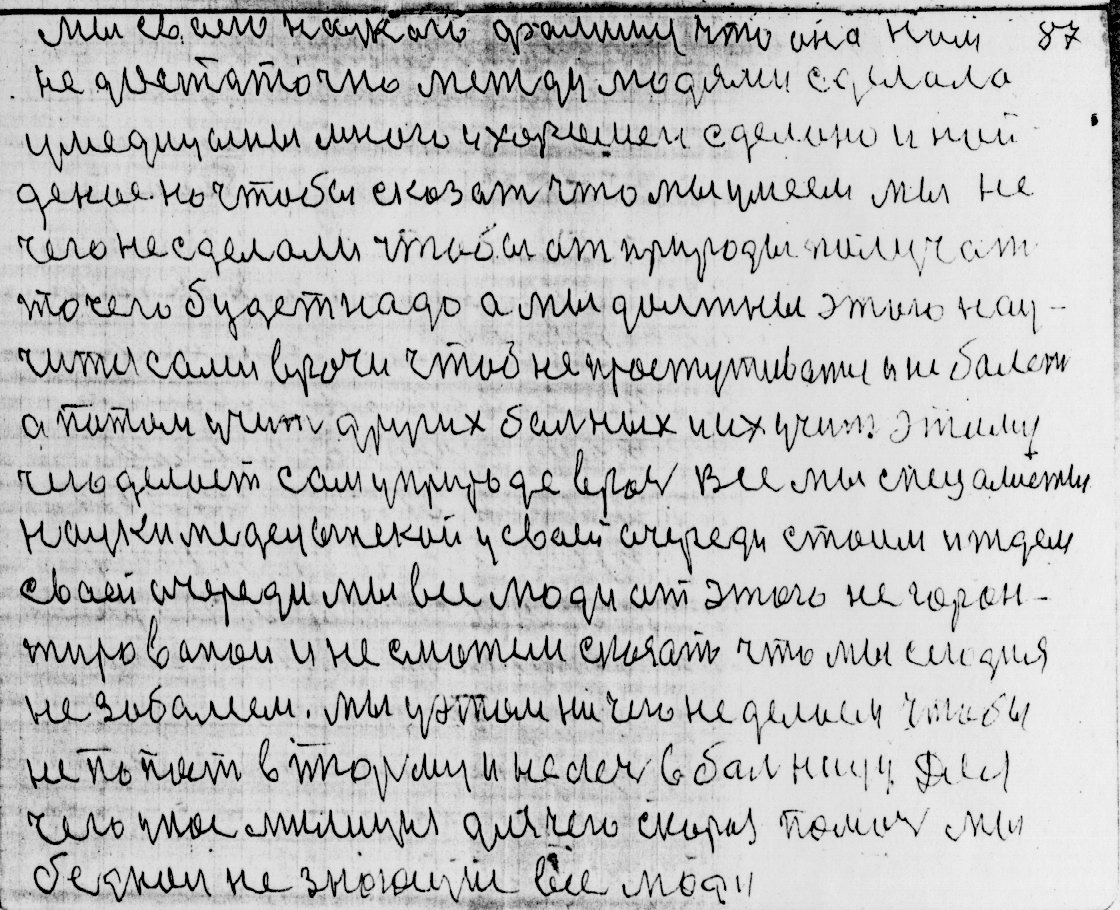 мы сваего наукаю фалишу что она нам 87
не двстаточно между людями сделала
у медицыны много и хорошеи сделано и най
деное. но чтобы сказат что мы умеем мы не
чего не сделали чтобы ат природы палучат
то чего будет надо а мы должны этого нау-
читя сами врочи чтоб не простуживатя и не балет
а патом учит других балных и их учит этаму
чего делает сам у природе врач все мы спецалисты
науки медецынской у сваей очереди стоим и ждем
сваей очереди мы все люди ат этого не гаран-
тированои и не сможем скозать что мы сегодня
не забалеем. мы у этом ничего не делаем чтобы
не попаст в тюрму и не леч в балницу Для
чего у нас милицыя для чего скорая помач мы
беднои не знающии все люди